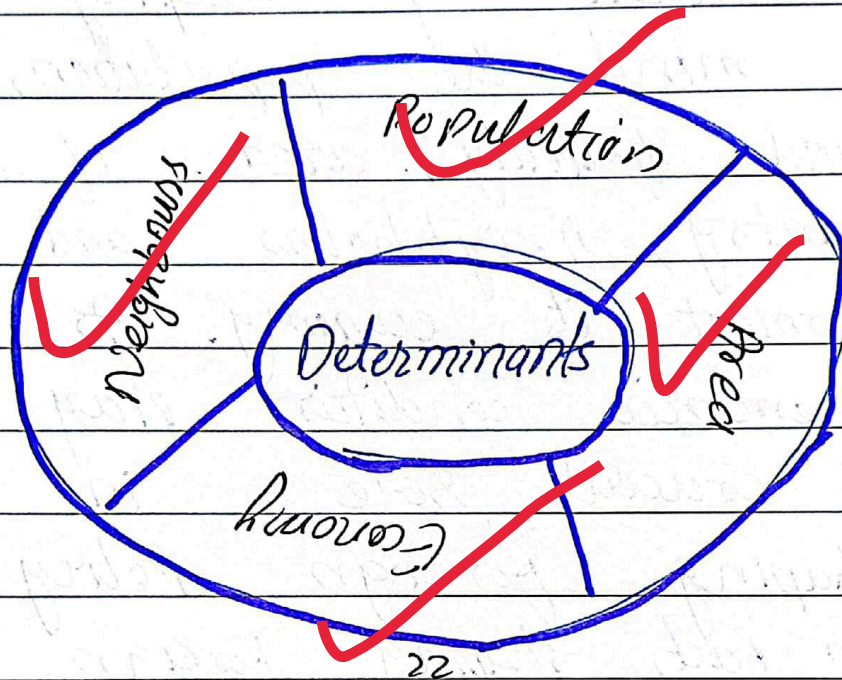 Population
Neighbours
Determinants
Area
Economy
22